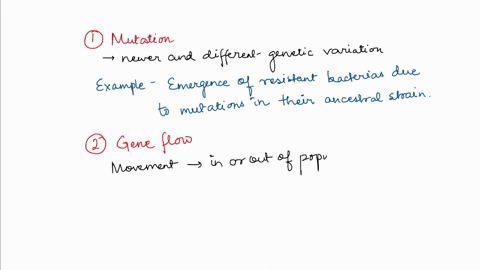 ① Mutation
→ newer and differel- genetic variation
Example - Emergence of resistant bacterias due
to mutations in their ancestral strain.
② Gene flow
Movement → in or out of popu